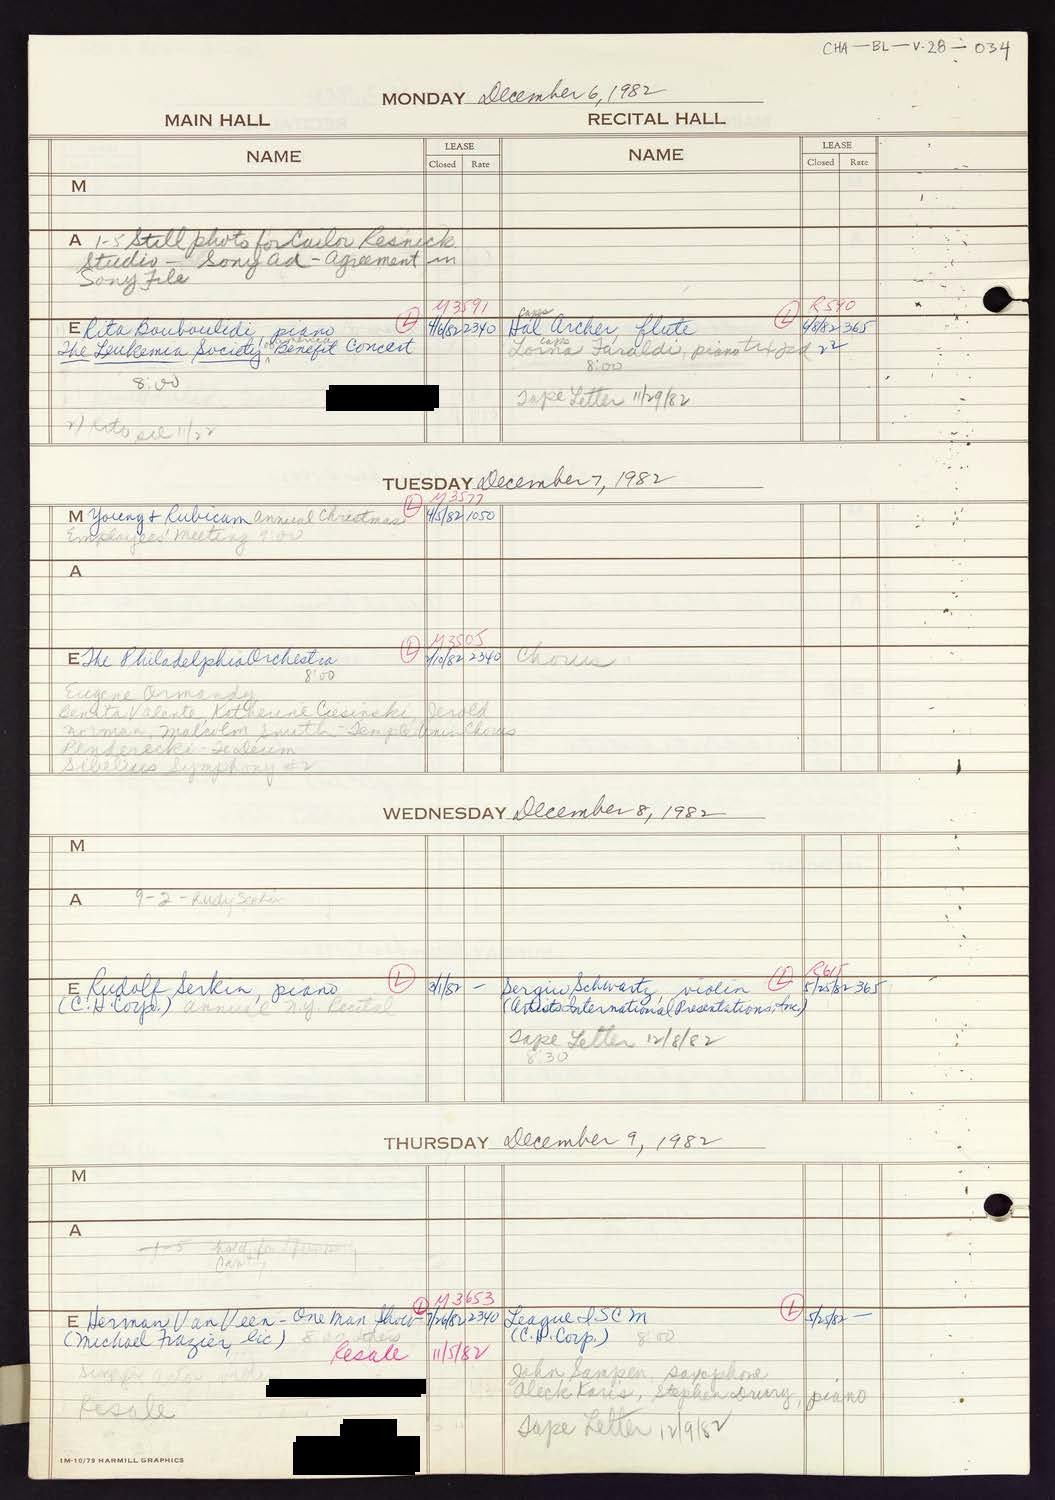 CHA-BL-V-28-034
MONDAY December 6, 1982
MAIN HALL RECITAL HALL
NAME LEASE Closed Rate NAME LEASE Closed Rate
M
A 1-5 Still photo for Cailor Resnick
Studio - Sony Ad - Agreement in
Sony File
M3591 R590
E Rita Bouboulidi, piano (L) 4/6/82 2340 Hal Archer, flute (L) 4/8/82 365
The Leukemia Society of America Benefit Concert Lorna Faraldi, piano
8:00 8:00
Tape Letter 11/29/82
TUESDAY December 7, 1982
(L) M3577
M Young & Rubicam Annual Christmas 4/5/82 1050
Employees' Meeting 9:00
A
(L) M3505
E The Philadelphia Orchestra 2340 Chorus
8:00
Eugene Ormandy
Benita Valente, Katherine Ciesinski, Jerold
Norman, Malcolm Smith - Temple Univ Chorus
Penderecki - Te Deum
Sibelius Symphony #2
WEDNESDAY December 8, 1982
M
A 9-2 - Rudy Serkin
R615
E Rudolf Serkin, piano (L) 3/1/82 - Sergiu Schwartz, violin (L) 5/25/82 365
(C.H.Corp.) Annual N.Y. Recital (Artists International Presentations, Inc.)
Tape Letter 12/8/82
8:30
THURSDAY December 9, 1982
M
A
1-5 hold for
(L) M3653
E Herman Van Veen - One Man Show 7/26/82 2340 League ISCM (L) 5/25/82 -
(Michael Frazier, Inc) (C.H.Corp.) 8:00
Resale 11/5/82
John Sampen, saxophone
Aleck Karis, Stephen Drury, piano
Resale
Tape Letter 12/9/82
1M-10/79 HARMILL GRAPHICS